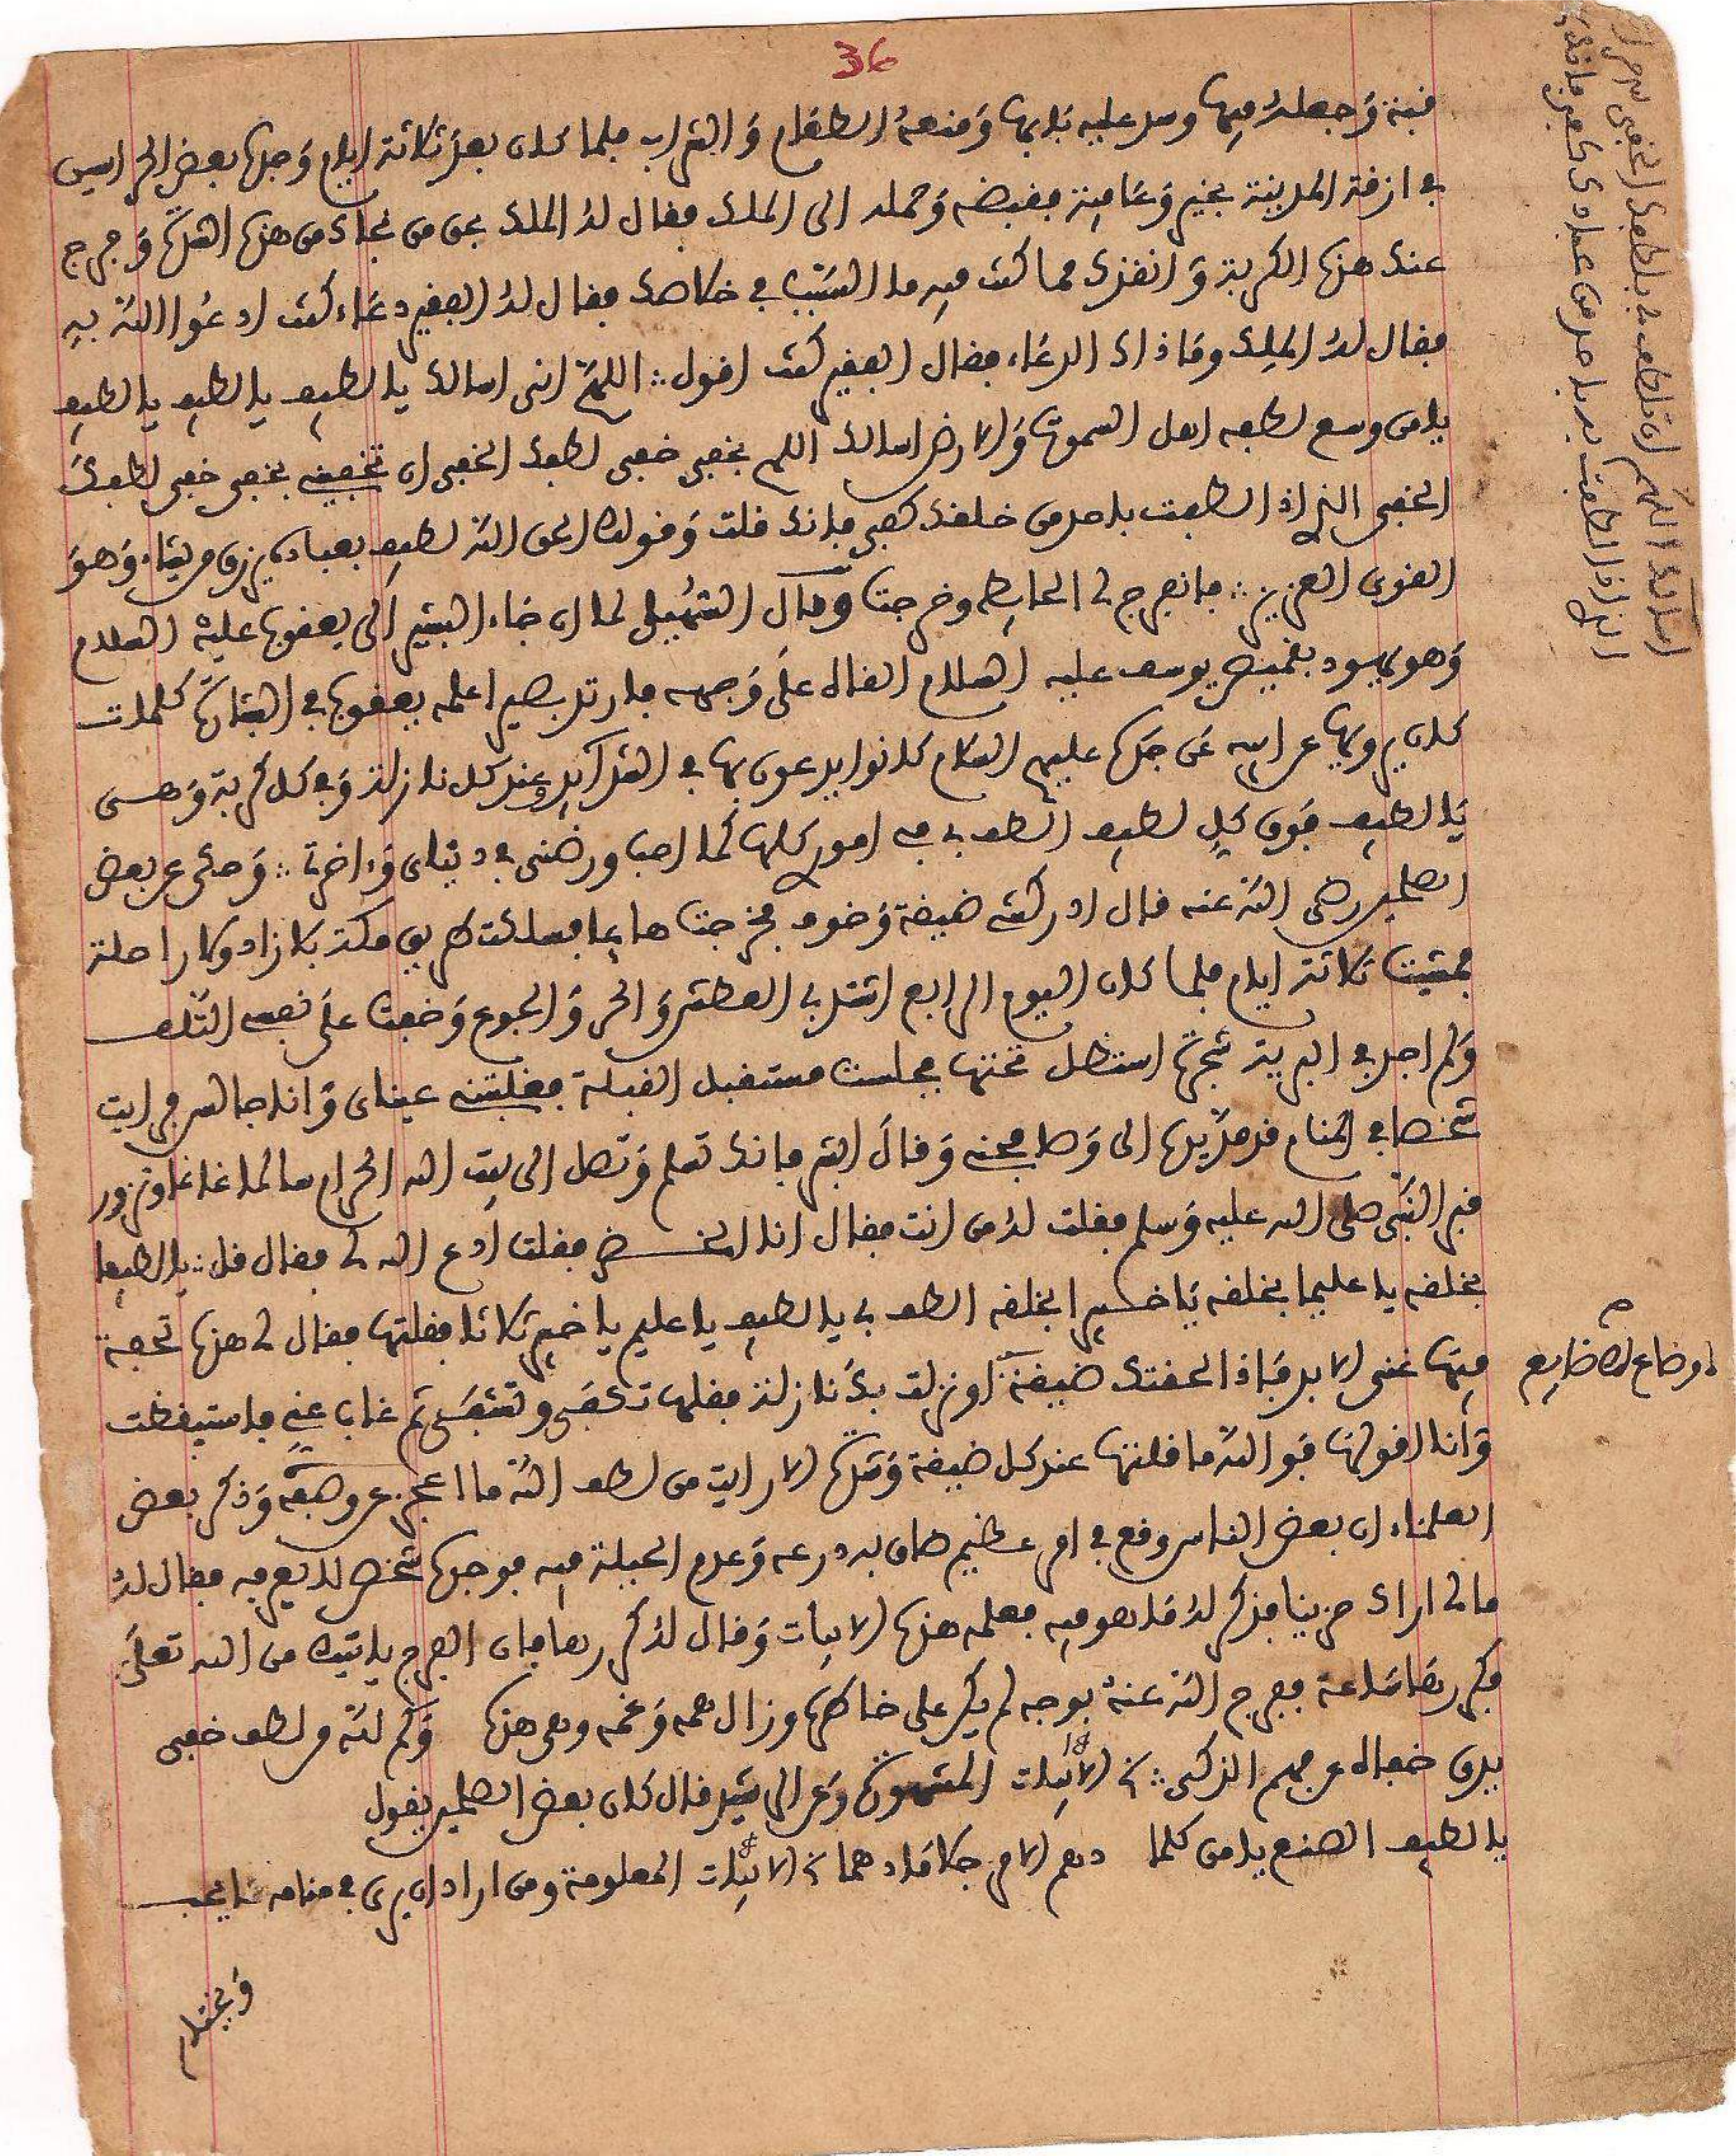 36
قبة وَجعلهُ فيها وسد عليه بَابها وَمنعهُ الطعَام وَالشراب فلما كان بعدَ ثلاثة ايام وَجدهُ بعض الحراسين
في ازقة المدينة بخير وَعَافية فقبضه وَحمله الى الملك فقال لهُ الملك بمن من نجاك من هذه الشدة وَفرج
عنك هذه الكربة وَانقذك مما كنت فيه ما السَّبَب في خلاصك فقال لهُ الفقير دعَاء كنت ادعُوا اللهَ بِهِ
فقال لهُ الملِك ومَا ذاك الدعَاء فقال الفقير كنت اقول ∴ اللهمَّ اني اسالك يا لطيف يا لطيف يا لطيف
يا من وسع لطفه اهل السموات وَالارض اسالك اللهم بخفي خفي لطفك الخفي ان تخفيني بخفي خفي لطفكَ
الخفي الذي اذا لطفت به احد من خلقك كفي فانك قلت وَقولك الحق اللهَ لطيف بعباده يرزق من يشاء وَهوَ
القوى العزيز ∴ فانفرج لي الحايط وخرجت وَقال السُّهَيلي لما ان جَاء البشير الى يعقوب عليه السلام
وَهو يهود بقميص يوسف عليه السلام القاه علَى وَجهه فارتد بصيرا علمه يعقوب في البشارة كلمات
كان يرويها عن ابيه عَن جَده عليهم السَلام كانوا يدعون بها في الشدَآيدِ وعند كل نازلة وَفي كل كربة وَهــى
يَا لطيف فوق كلِ لطيف الطف بي في امورى كلها كما احب ورضني في دنياي وَءاخرتي ∴ وَحكى عن بعض
الصلحين رضي اللهَ عنه قال ادركتني ضيقة وَخوف فخرجت هايما فسلكت طريق مكة بلا زاد ولا راحلة
فمشيت ثلاثة ايام فلما كان اليوم الرابع اشتد بي العطش وَالحر وَالجوع وَخفت علَى نفسي التلف
وَلم اجد في البرية شجرة استظل تحتها فجلست مستقبل القبلة فغلبتني عيناى وَانا جالس فرايت
شخصا في المنام قد مدَّ يده الى وَصافحني وَقالَ ابشر فانك تسلم وَتصل الى بيت الله الحرام سالما غانما وتزور
قبر النَّبي صلى الله عليه وَسلم فقلت لهُ من انت فقال انا الخـضر فقلت اُدع الله لي فقال قل ∴ يا لطيفا
بخلقه يا عليما بخلقه يَا خبيرا بخلقه الطف بي يا لطيف يا عليم يا خبير ثلاثا فقلتها فقال لي هذه تحفة
فيها غنى الابد فاذا لحقتك ضيقة او نزلت بكَ نازلة فقلها تكفَى وتشفَى ثم غاب عني فاستيقظت
وَأنا اقولها فوَالله ما قلتها عند كل ضيقة وَشدة الا رايت من لطف اللهَ ما اعجز عن وصفه وَذكر بعض
العلماء ان بعض الناس وقع في امر عظيم ضاق به درعه وَعدم الحيلة فيه فوجده شخص لا يعرفه فقال لهُ
ما لي اراك حزينا فذكر لهُ مَا هو فيه فعلمه هذه الابيات وَقال لهُ كررها فان الفرج ياتيك من الله تعلَى
فكررهَا سَاعة ففرج اللهَ عنهُ بوجه لم يكن على خاطره وزال همه وَغمه وهى هذه وَكم للهَ من لطف خفي
يدق خفاه عن فهم الذكي ∴ الابيات المشهورة وَعن الى شيد قال كان بعض الصلحين يقول
يا لطيف الصنع يا من كلما دهم الامر جلا مَا دهما الابيات المعلومة ومن اراد ان يرى في منامه مَا يحب
وَيختم
اسالك اللهم ان تلطف بي بلطفك الخفي
الذى اذا لطفت به باحد من عبادك كفي فانك
او ضاع له ضايع